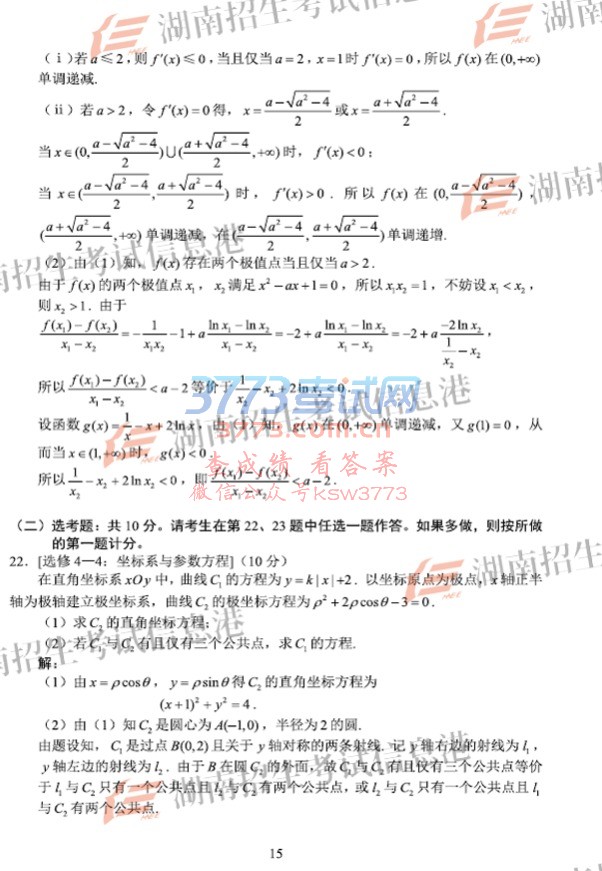 (ⅰ)若a≤2,则f′(x)≤0,当且仅当a=2,x=1时f′(x)=0,所以f(x)在(0,+∞)
单调递减.
(ⅱ)若a>2,令f′(x)=0得,x=(a-√(a²-4))/2或x=(a+√(a²-4))/2.
当x∈(0,(a-√(a²-4))/2)∪((a+√(a²-4))/2,+∞)时,f′(x)<0;
当x∈((a-√(a²-4))/2,(a+√(a²-4))/2)时,f′(x)>0.所以f(x)在(0,(a-√(a²-4))/2),
((a+√(a²-4))/2,+∞)单调递减,在((a-√(a²-4))/2,(a+√(a²-4))/2)单调递增.
(2)由(1)知,f(x)存在两个极值点当且仅当a>2.
由于f(x)的两个极值点x₁,x₂满足x²-ax+1=0,所以x₁x₂=1,不妨设x₁<x₂,
则x₂>1.由于
(f(x₁)-f(x₂))/(x₁-x₂)=-1/(x₁x₂)-1+a(ln x₁-ln x₂)/(x₁-x₂)=-2+a(ln x₁-ln x₂)/(x₁-x₂)=-2+a(-2ln x₂)/(1/x₂-x₂),
所以(f(x₁)-f(x₂))/(x₁-x₂)<a-2等价于1/x₂-x₂+2ln x₂<0.
设函数g(x)=1/x-x+2ln x,由(1)知,g(x)在(0,+∞)单调递减,又g(1)=0,从
而当x∈(1,+∞)时,g(x)<0.
所以1/x₂-x₂+2ln x₂<0,即(f(x₁)-f(x₂))/(x₁-x₂)<a-2.
(二)选考题:共10分。请考生在第22、23题中任选一题作答。如果多做,则按所做
的第一题计分。
22.[选修4—4:坐标系与参数方程](10分)
在直角坐标系xOy中,曲线C₁的方程为y=k|x|+2.以坐标原点为极点,x轴正半
轴为极轴建立极坐标系,曲线C₂的极坐标方程为ρ²+2ρcosθ-3=0.
(1)求C₂的直角坐标方程;
(2)若C₁与C₂有且仅有三个公共点,求C₁的方程.
解:
(1)由x=ρcosθ,y=ρsinθ得C₂的直角坐标方程为
(x+1)²+y²=4.
(2)由(1)知C₂是圆心为A(-1,0),半径为2的圆.
由题设知,C₁是过点B(0,2)且关于y轴对称的两条射线.记y轴右边的射线为l₁,
y轴左边的射线为l₂.由于B在圆C₂的外面,故C₁与C₂有且仅有三个公共点等价
于l₁与C₂只有一个公共点且l₂与C₂有两个公共点,或l₂与C₂只有一个公共点且l₁
与C₂有两个公共点.
15
湖南招生考试信息港
3773考试网
3773.com.cn
查成绩 看答案
微信公众号ksw3773